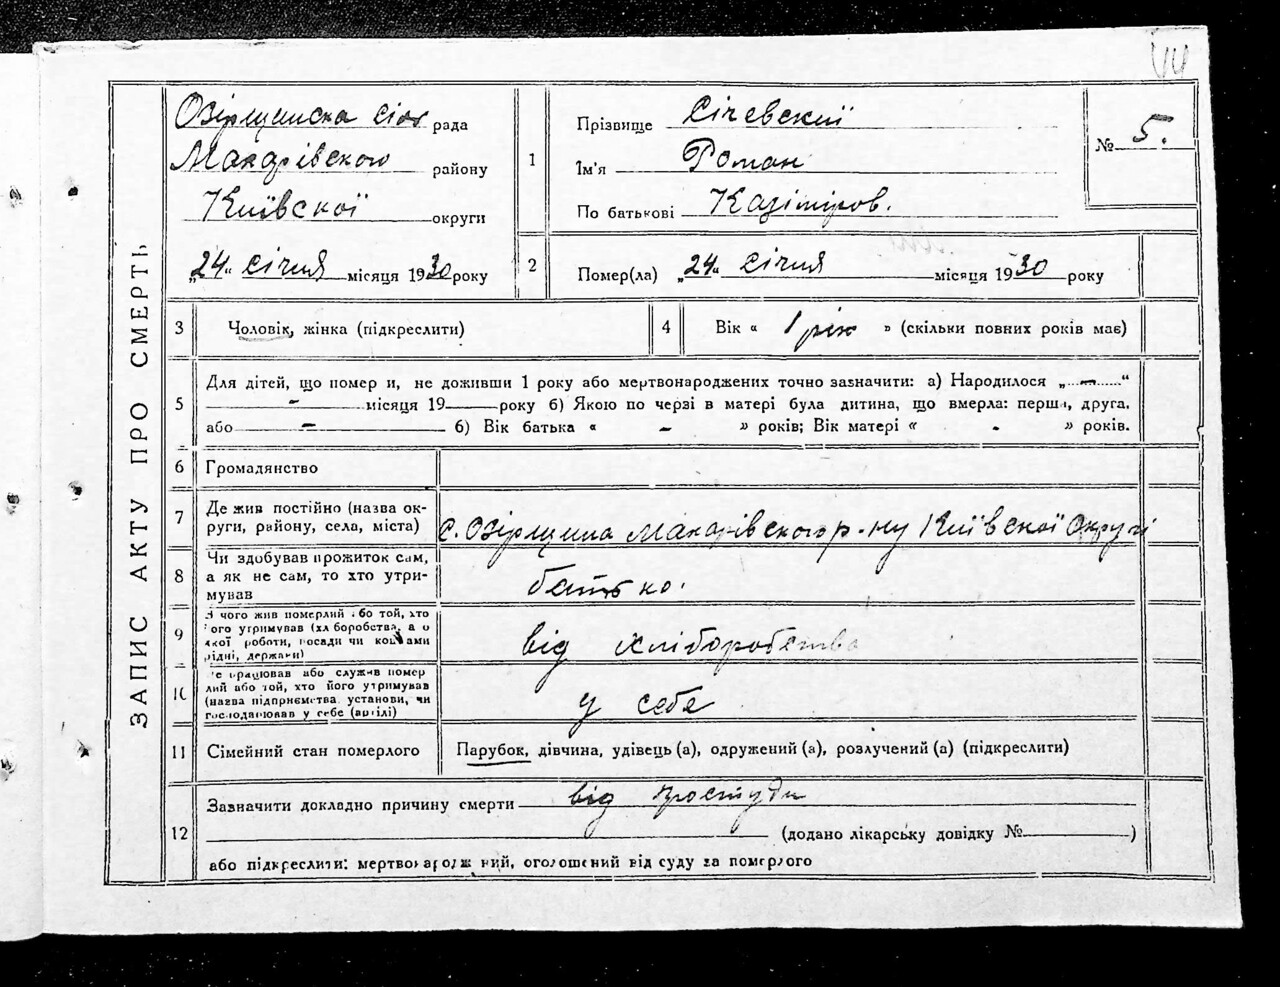 44
ЗАПИС АКТУ ПРО СМЕРТЬ
Озірщинска сіл рада
Макарівского району
Київскої округи
„24" січня місяця 1930 року
1
Прізвище Січевский
Ім'я Роман
По батькові Казіміров.
№ 5.
2
Помер(ла) „24" січня місяця 1930 року
3 Чоловік, жінка (підкреслити)
4 Вік « 1 рік » (скільки повних років має)
5
Для дітей, що помер и, не доживши 1 року або мертвонароджених точно зазначити: а) Народилося „ — "
- місяця 19 року б) Якою по черзі в матері була дитина, що вмерла: перша, друга,
або — б) Вік батька « - » років; Вік матері « - » років.
6 Громадянство
7
Де жив постійно (назва ок-
руги, району, села, міста)
с. Озірщина Макарівского р-ну Київскої Округи
8
Чи здобував прожиток сам,
а як не сам, то хто утри-
мував
батько.
9
З чого жив померлий або той, хто
його утримував (хліборобства, а о
якої роботи, посади чи коштами
рідні, держави)
від хліборобства
10
Де працював або служив помер
лий або той, хто його утримував
(назва підприємства установи, чи
господарював у себе (артілі)
у себе
11 Сімейний стан померлого
Парубок, дівчина, удівець(а), одружений(а), розлучений(а) (підкреслити)
12
Зазначити докладно причину смерти від простуди
(додано лікарську довідку № )
або підкреслити: мертвонароджений, оголошений від суду за померлого